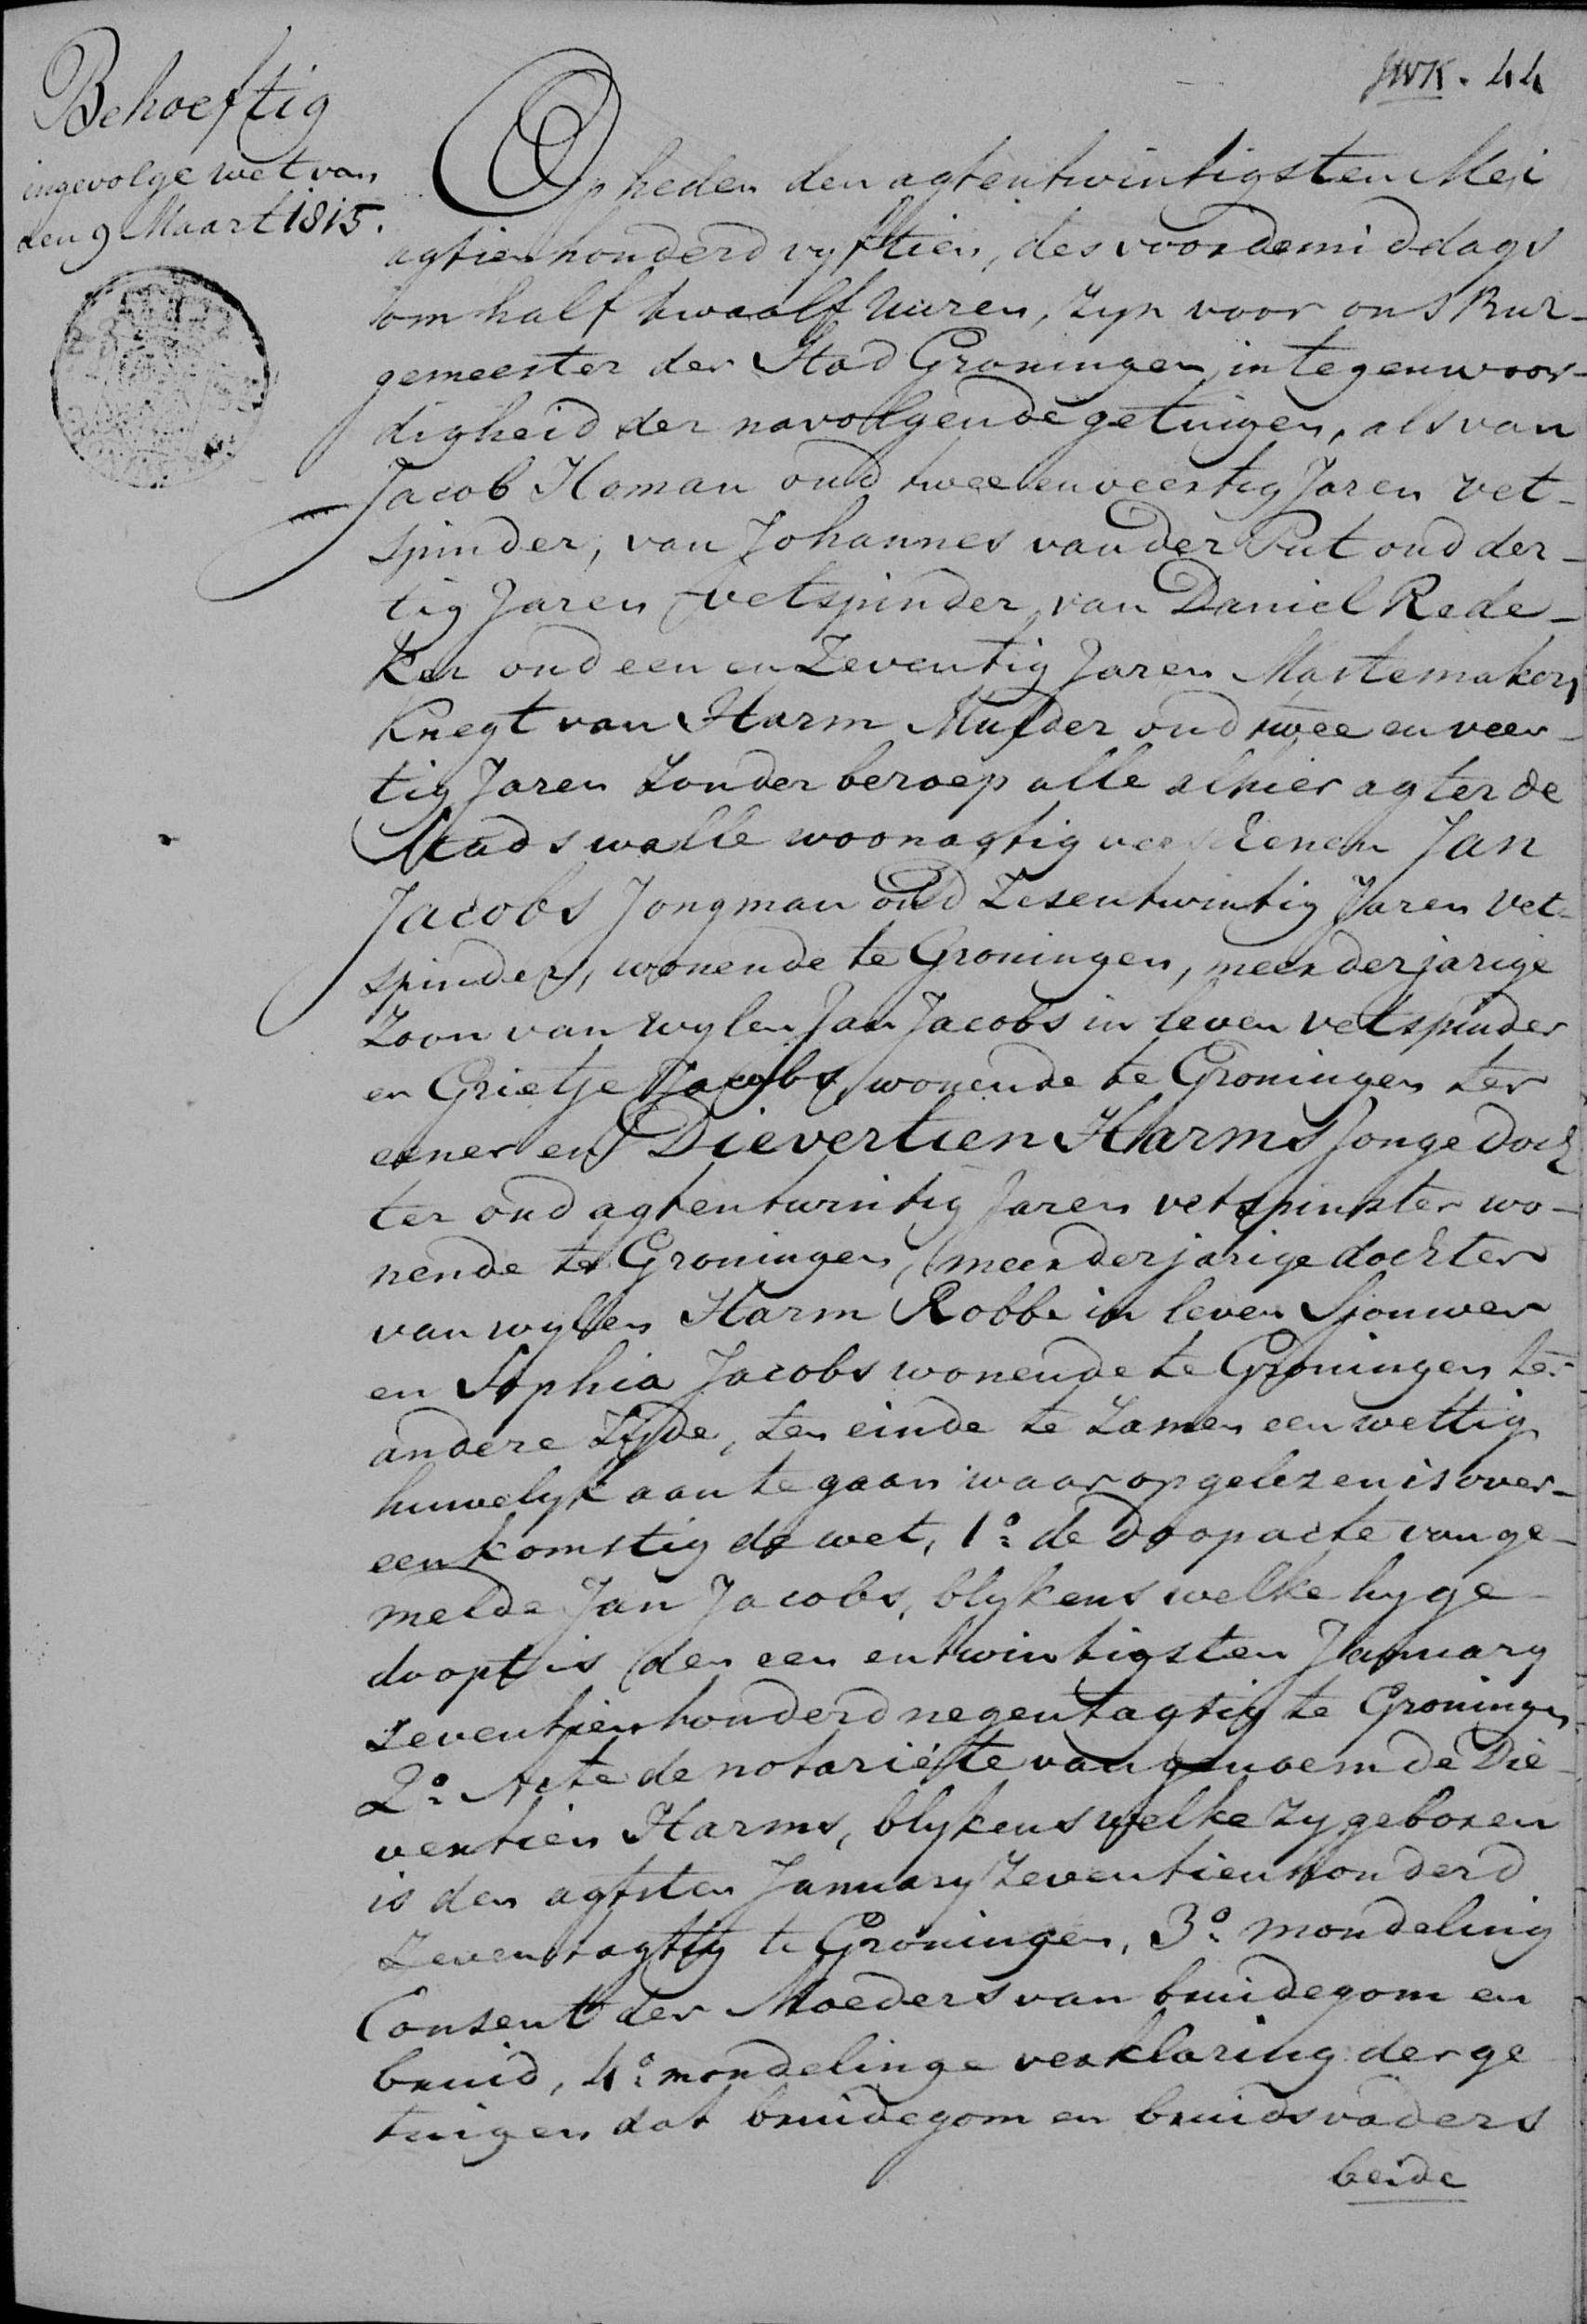 JWK. 44
Behoeftig
ingevolge wet van
den 9 Maart 1815.
Op heden den agtentwintigsten Mei
agtienhonderd vyftien, des voordemiddags
om half twaalf uuren, zyn voor ons Bur-
gemeester der Stad Groningen, in tegenwoor-
digheid der navolgende getuigen, als van
Jacob Homan oud twee en veertig Jaren vet-
spinder, van Johannes van der Put oud der-
tig Jaren vetspinder, van Daniel Rede-
ker oud een en Zeventig Jaren Mastemakers
Knegt van Harm Mulder oud twee en veer-
tig Jaren Zonder beroep alle alhier agter de
Stads walle woonagtig verschenen Jan
Jacobs Jongman oud Zesentwintig Jaren vet-
spinder, wonende te Groningen, meerderjarige
Zoon van wylen Jan Jacobs in leven vetspinder
en Grietje Jacobs, wonende te Groningen ter
eener en Dievertien Harms Jonge doch
ter oud agtentwintig Jaren vetspinster wo-
nende te Groningen, meerderjarige dochter
van wylen Harm Robbe in leven Sjouwer
en Sophia Jacobs wonende te Groningen ter
andere Zyde, ten einde te Zamen een wettig
huwelyk aan te gaan waar op gelezen is over-
eenkomstig de wet, 1º de doopacte van ge-
melde Jan Jacobs, blykens welke hy ge-
doopt is den een entwintigsten January
Zeventienhonderd negentagtig te Groningen
2º Acte de notariéte van genoemde Die
vertien Harms, blykens welke zy geboren
is den agtsten January Zeventienhonderd
Zeventagtig te Groningen, 3º mondeling
Consent der Moeders van bruidegom en
bruid, 4º mondelinge verklaring der ge
tuigen dat bruidegom en bruidsvaders
beide